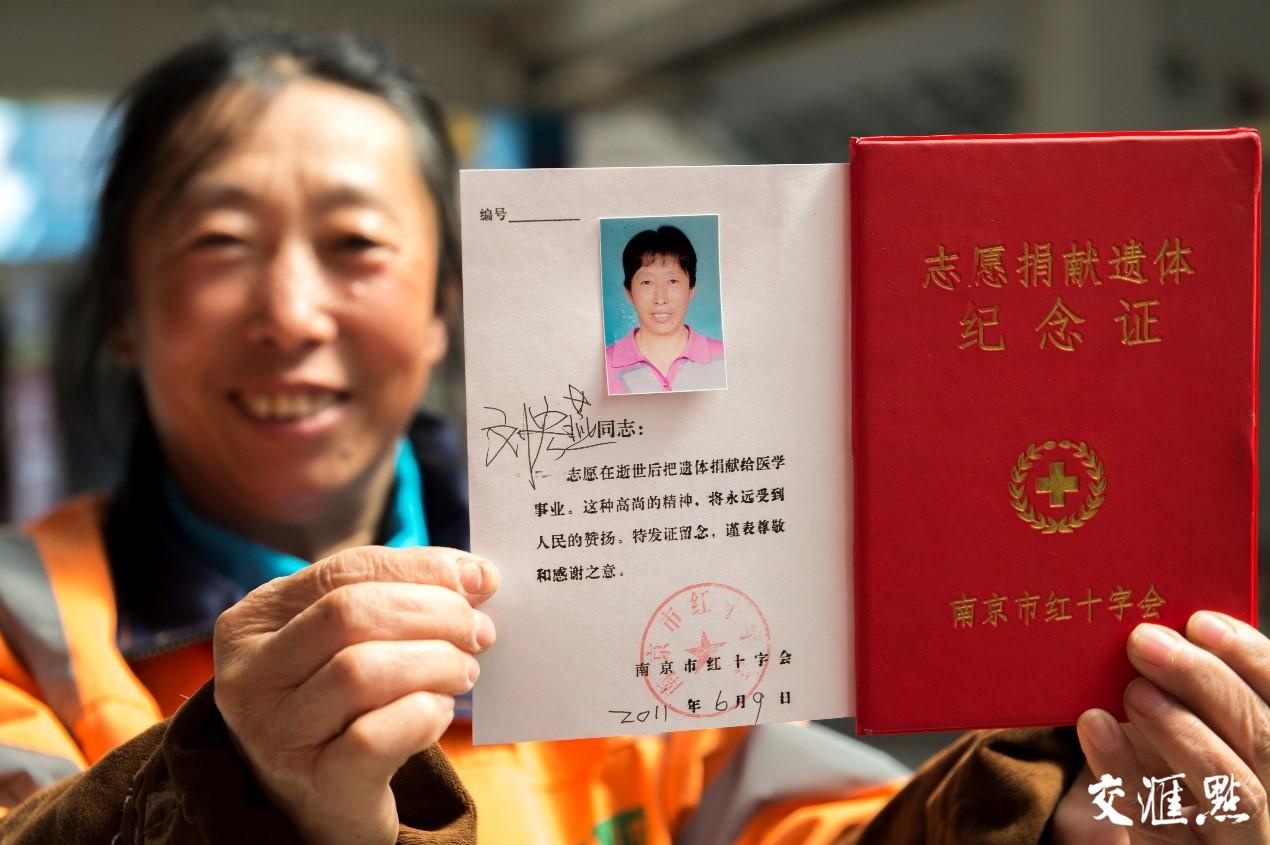 编号
同志：
志愿在逝世后把遗体捐献给医学
事业。这种高尚的精神，将永远受到
人民的赞扬。特发证留念，谨表尊敬
和感谢之意。
南京市红十字会
2011年6月9日
志愿捐献遗体
纪念证
南京市红十字会
交汇點